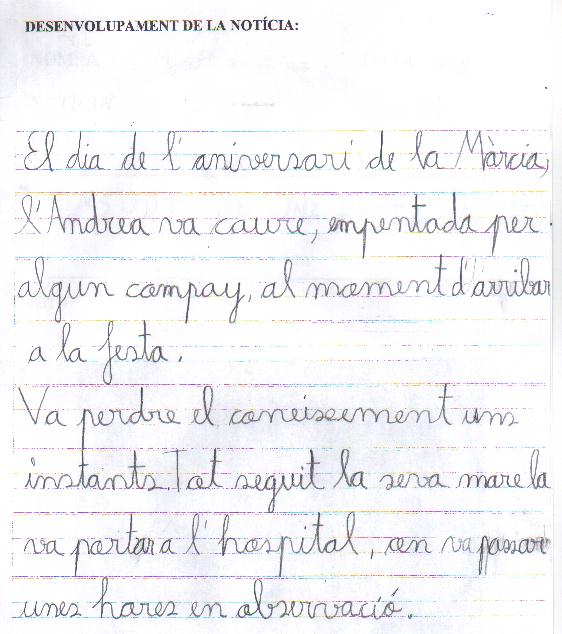 DESENVOLUPAMENT DE LA NOTÍCIA:
El dia de l'aniversari de la Màrcia,
l'Andrea va caure, empentada per
algun compay, al moment d'arribar
a la festa.
Va perdre el coneixement uns
instants. Tot seguit la seva mare la
va portar a l'hospital, on va passar
unes hores en observació.